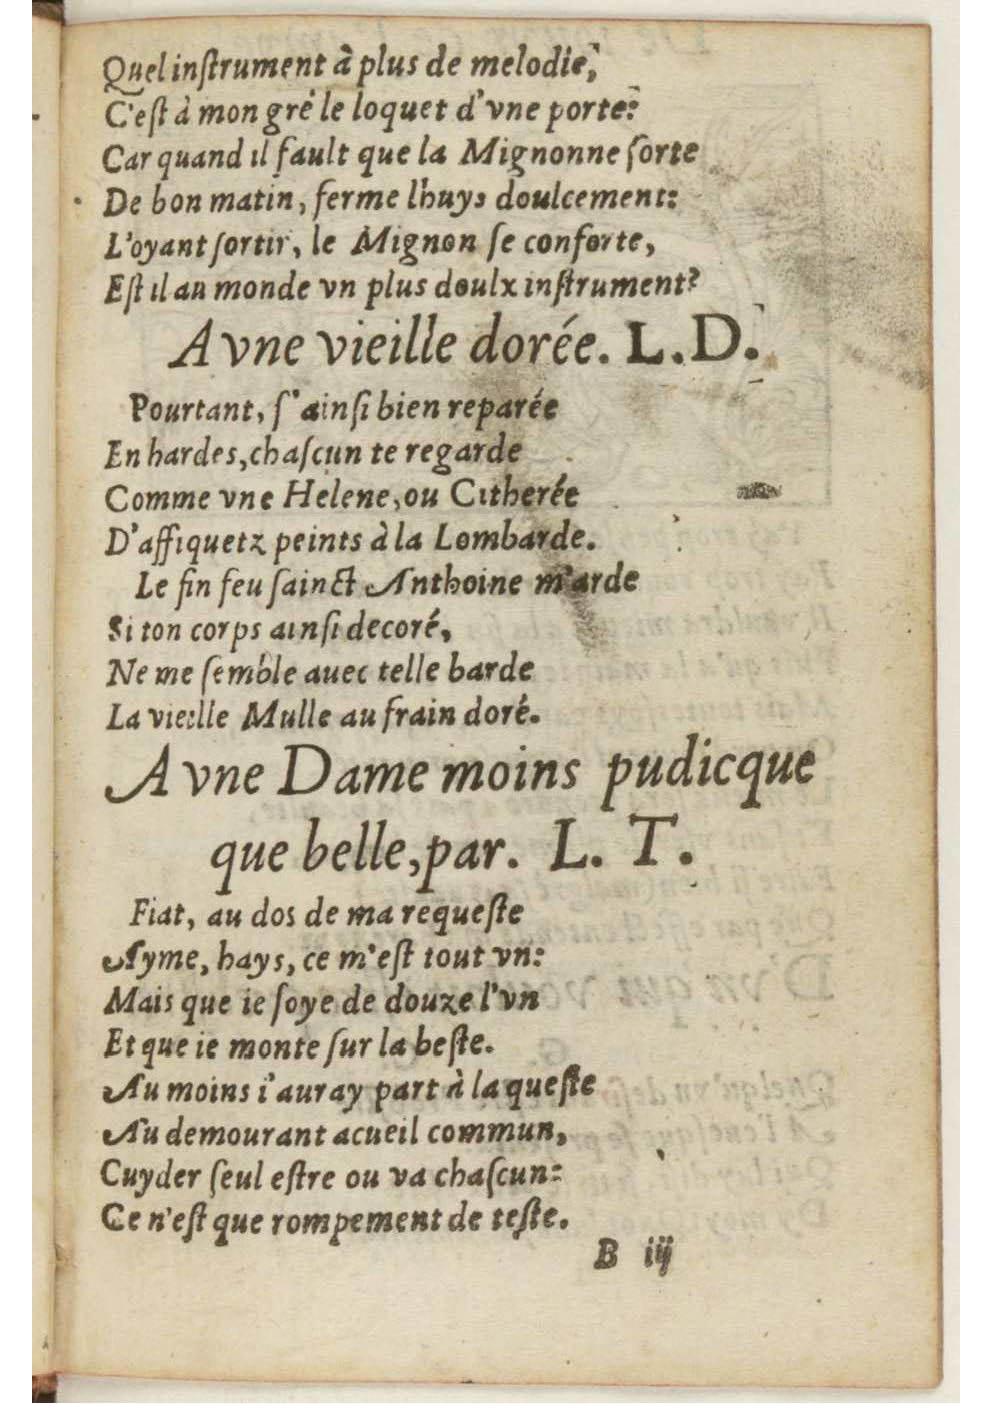 Quel inſtrument à plus de melodie,
C'eſt à mon gré le loquet d'vne porte:
Car quand il fault que la Mignonne ſorte
De bon matin, ferme l'huys doulcement:
L'oyant ſortir, le Mignon ſe conforte,
Eſt il au monde vn plus doulx inſtrument?
A vne vieille dorée. L.D.
Pourtant, ſ'ainſi bien reparée
En hardes, chaſcun te regarde
Comme vne Helene, ou Citherée
D'affiquetz peints à la Lombarde.
Le fin feu ſainct Anthoine m'arde
Si ton corps ainſi decoré,
Ne me ſemble auec telle barde
La vieille Mulle au frain doré.
A vne Dame moins pudicque
que belle, par. L. T.
Fiat, au dos de ma requeſte
Ayme, hays, ce m'eſt tout vn:
Mais que ie ſoye de douze l'vn
Et que ie monte ſur la beſte.
Au moins i'auray part à la queſte
Au demourant acueil commun,
Cuyder ſeul eſtre ou va chaſcun:
Ce n'eſt que rompement de teſte.
B iij